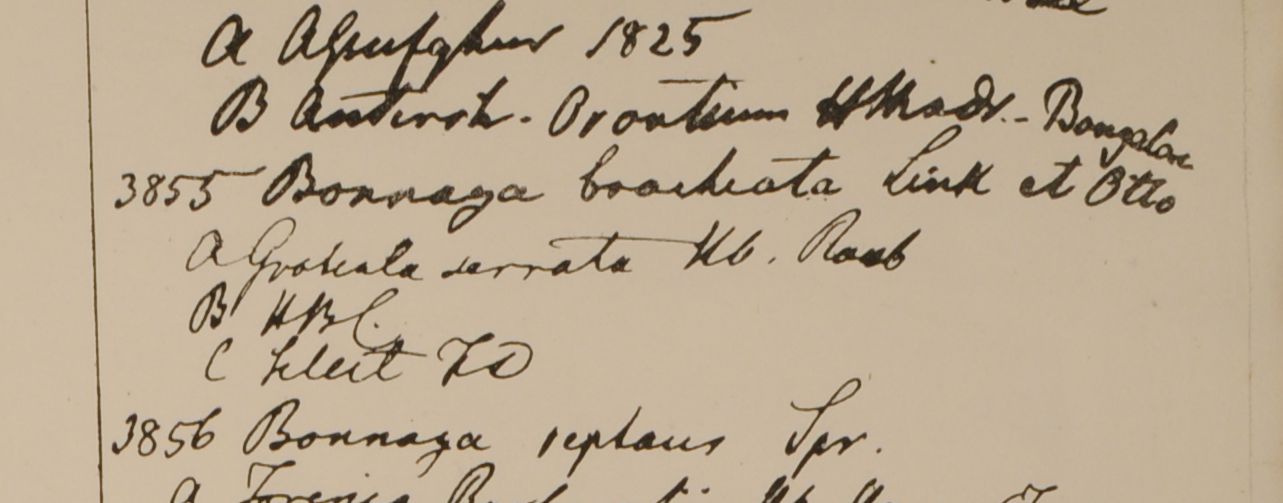 A Azufghur 1825
B Antirrh. Orontium H Madr. - Bangalor
3855 Bonnaya brachiata Link et Otto
A Gratiola serrata Hb. Roxb
B HBC.
C Silhet FD
3856 Bonnaya reptans Spr.
A Torenia